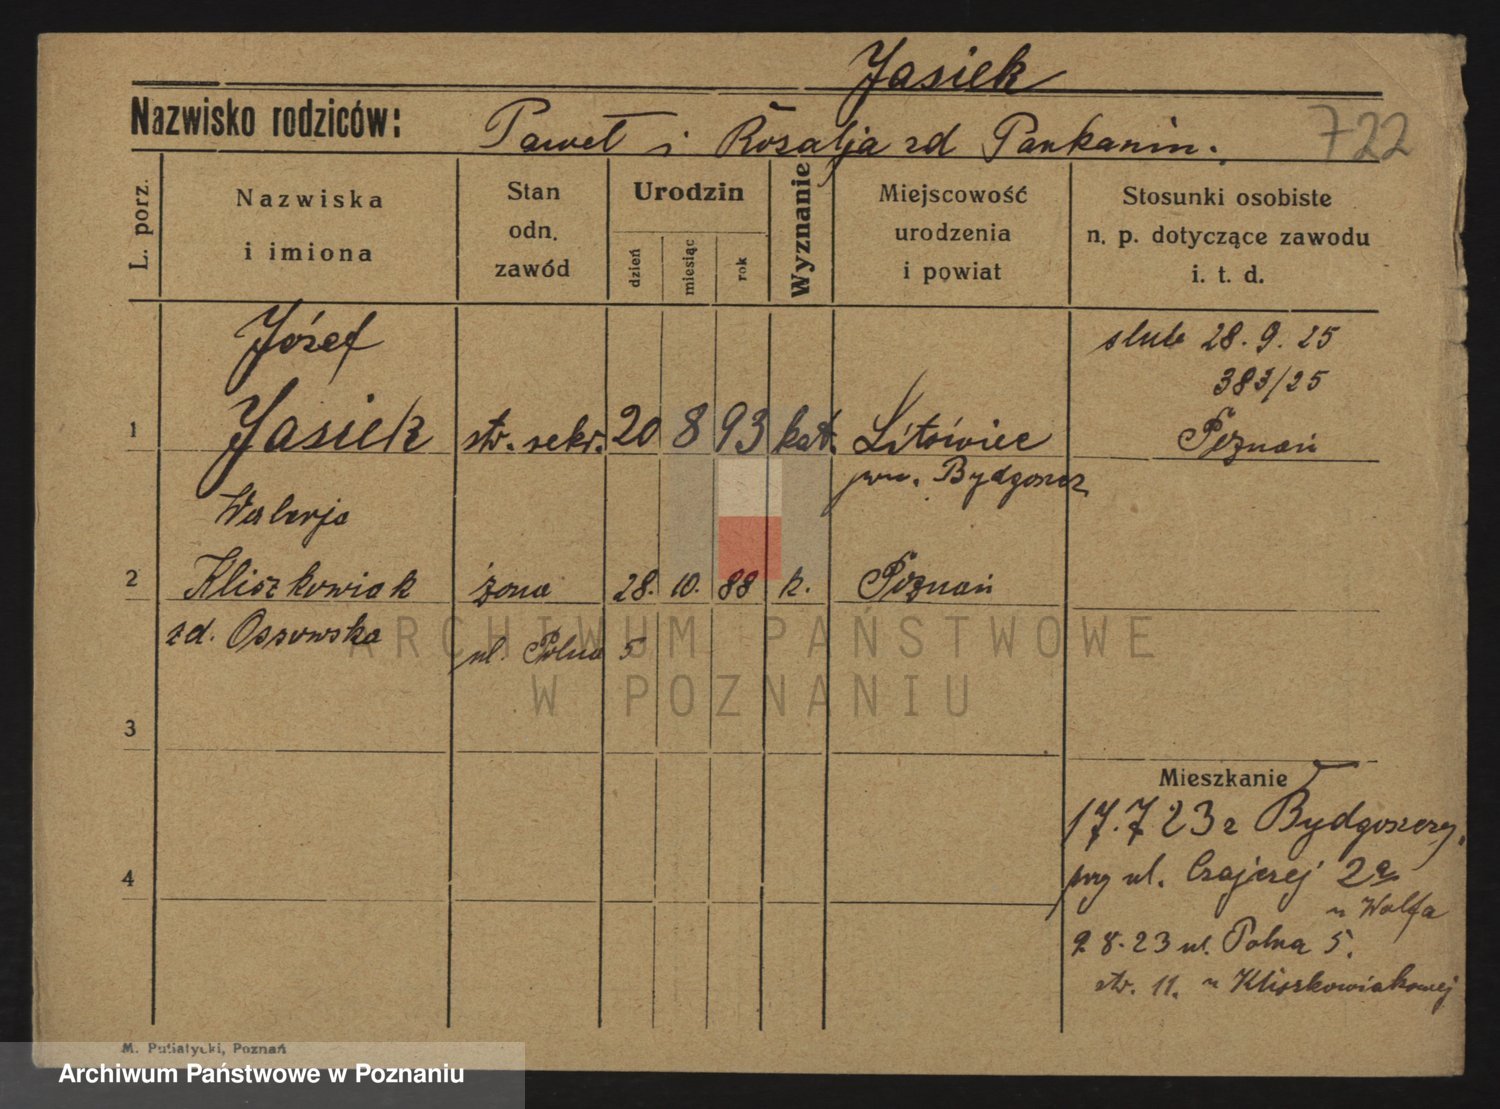 Jasiek
Nazwisko rodziców: Paweł i Rozalja zd Pankanin.
722
L. porz.
Nazwiska
i imiona
Stan
odn.
zawód
Urodzin
dzień
miesiąc
rok
Wyznanie
Miejscowość
urodzenia
i powiat
Stosunki osobiste
n. p. dotyczące zawodu
i. t. d.
Józef
ślub 28.9.25
383/25
1 Jasiek str. sekr. 20 8 93 kat. Poznań
pow. Bydgoszcz
Walerja
2 Kliszkowiak żona 28. 10. 88 k. Poznań
zd. Ossowska
ul. Polna 5
3
Mieszkanie
17.7 23 z Bydgoszczy,
przy ul. Czajczej 2a
u Wolfa
4
9 8.23 ul. Polna 5.
str. 11. u Kliszkowiakowej
M. Putiatycki, Poznań
ARCHIWUM PAŃSTWOWE
W POZNANIU
Archiwum Państwowe w Poznaniu